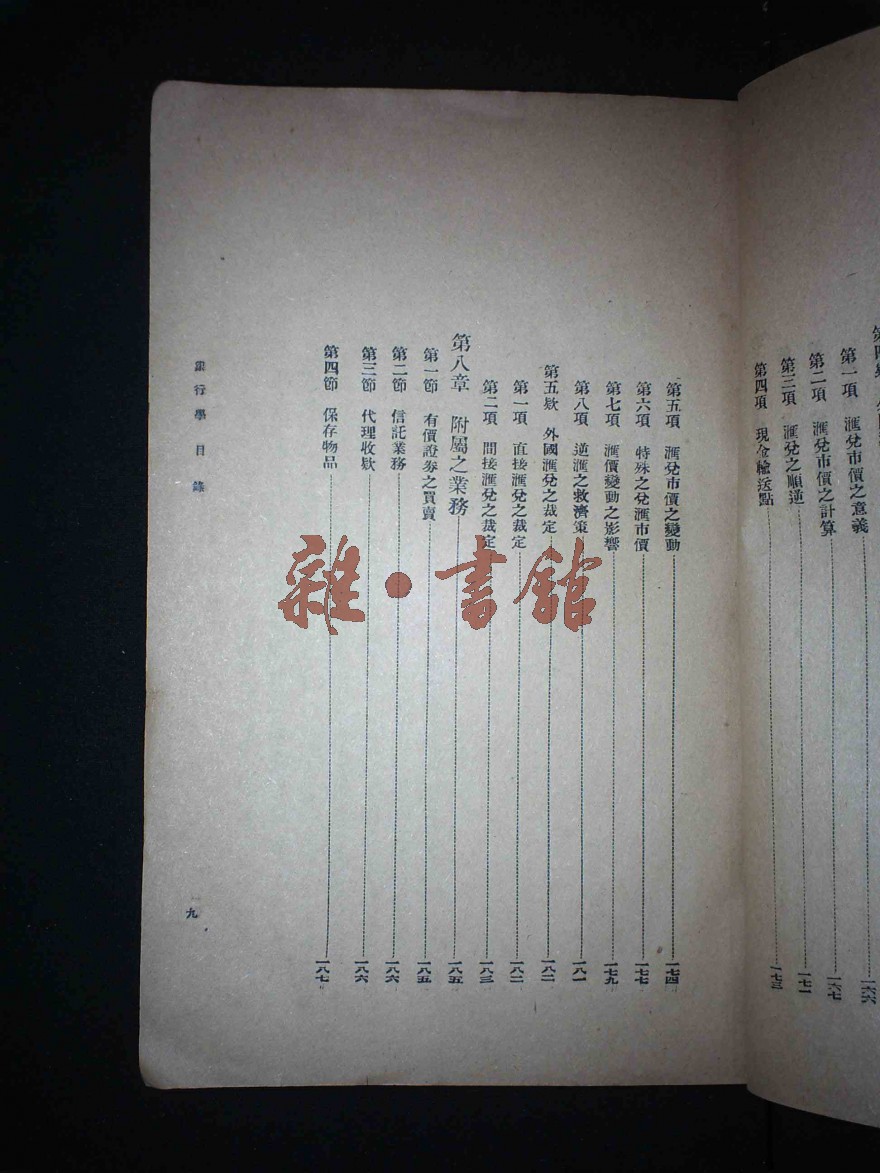 第一項 匯兌市價之意義 一六六
第二項 匯兌市價之計算 一六七
第三項 匯兌之順逆 一七一
第四項 現金輸送點 一七三
第五項 匯兌市價之變動 一七四
第六項 特殊之兌匯市價 一七七
第七項 匯價變動之影響 一七九
第八項 逆匯之救濟策 一八一
第五欵 外國匯兌之裁定 一八二
第一項 直接匯兌之裁定 一八二
第二項 間接匯兌之裁定 一八三
第八章 附屬之業務 一八五
第一節 有價證券之買賣 一八五
第二節 信託業務 一八六
第三節 代理收欵 一八六
第四節 保存物品 一八七
銀行學 目錄
九
雜·書館